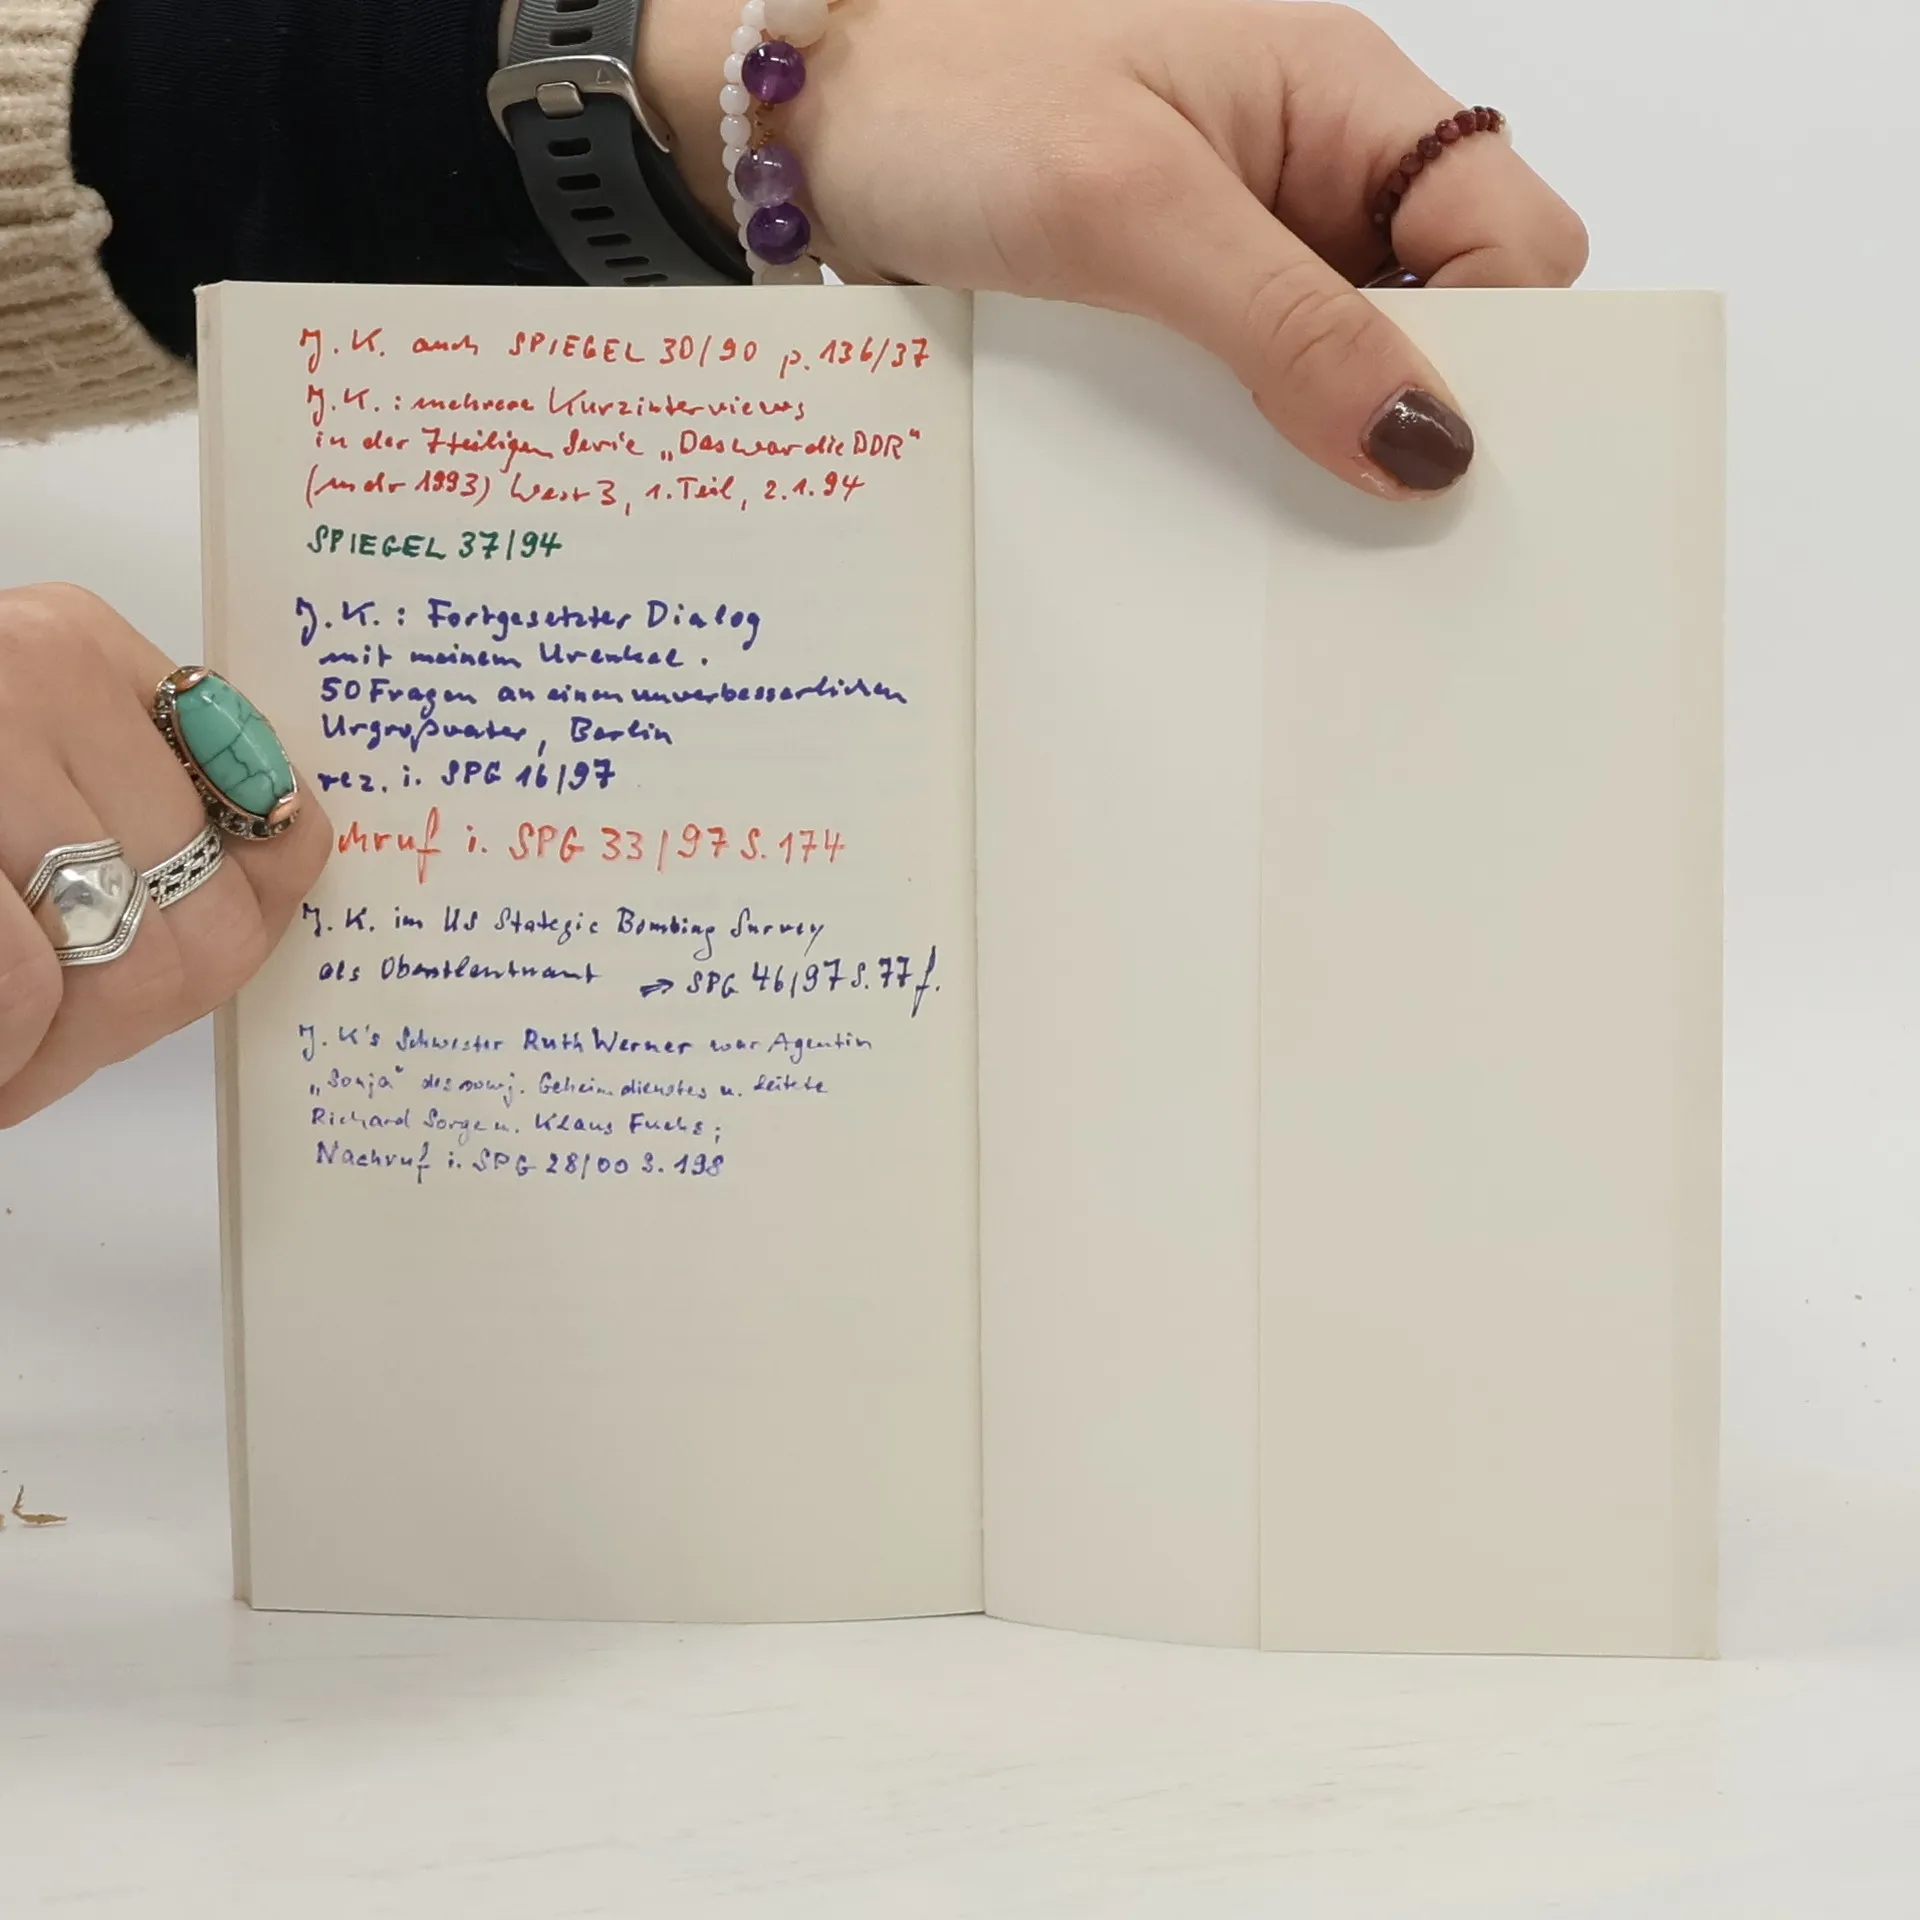 J. K. auch SPIEGEL 30/90 p. 136/37
J. K. : mehrere Kurzinterviews
in der 7teiligen Serie „Das war die DDR“
(mdr 1993) West 3, 1. Teil, 2.1.94
SPIEGEL 37/94
J. K. : Fortgesetzter Dialog
mit meinem Urenkel.
50 Fragen an einen unverbesserlichen
Urgroßvater, Berlin
rez. i. SPG 16/97
chruf i. SPG 33/97 S. 174
J. K. im US Stategic Bombing Survey
als Oberstleutnant ⇒ SPG 46/97 S. 77 f.
J. K's Schwester Ruth Werner war Agentin
„Sonja“ des sowj. Geheimdienstes u. leitete
Richard Sorge u. Klaus Fuchs;
Nachruf i. SPG 28/00 S. 198